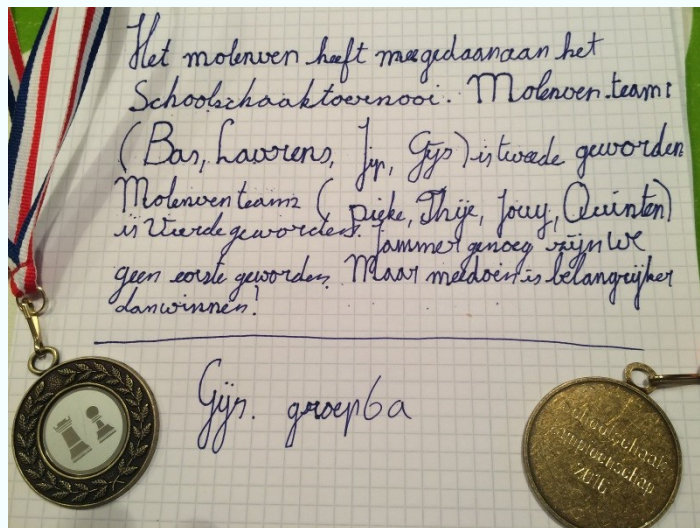 Het molenven heeft meegedaan aan het
Schoolschaaktoernooi. Molenven team1
(Bas, Laurens, Jip, Gijs) is tweede geworden
Molenven team2 (Pieke, Thije, Jouy, Quinten)
is Vierde geworden. Jammer genoeg zijn we
geen eerste geworden. Maar meedoen is belangrijker
dan winnen!
Gijs. groep 6a
schoolschaak
kampioenschap
2016